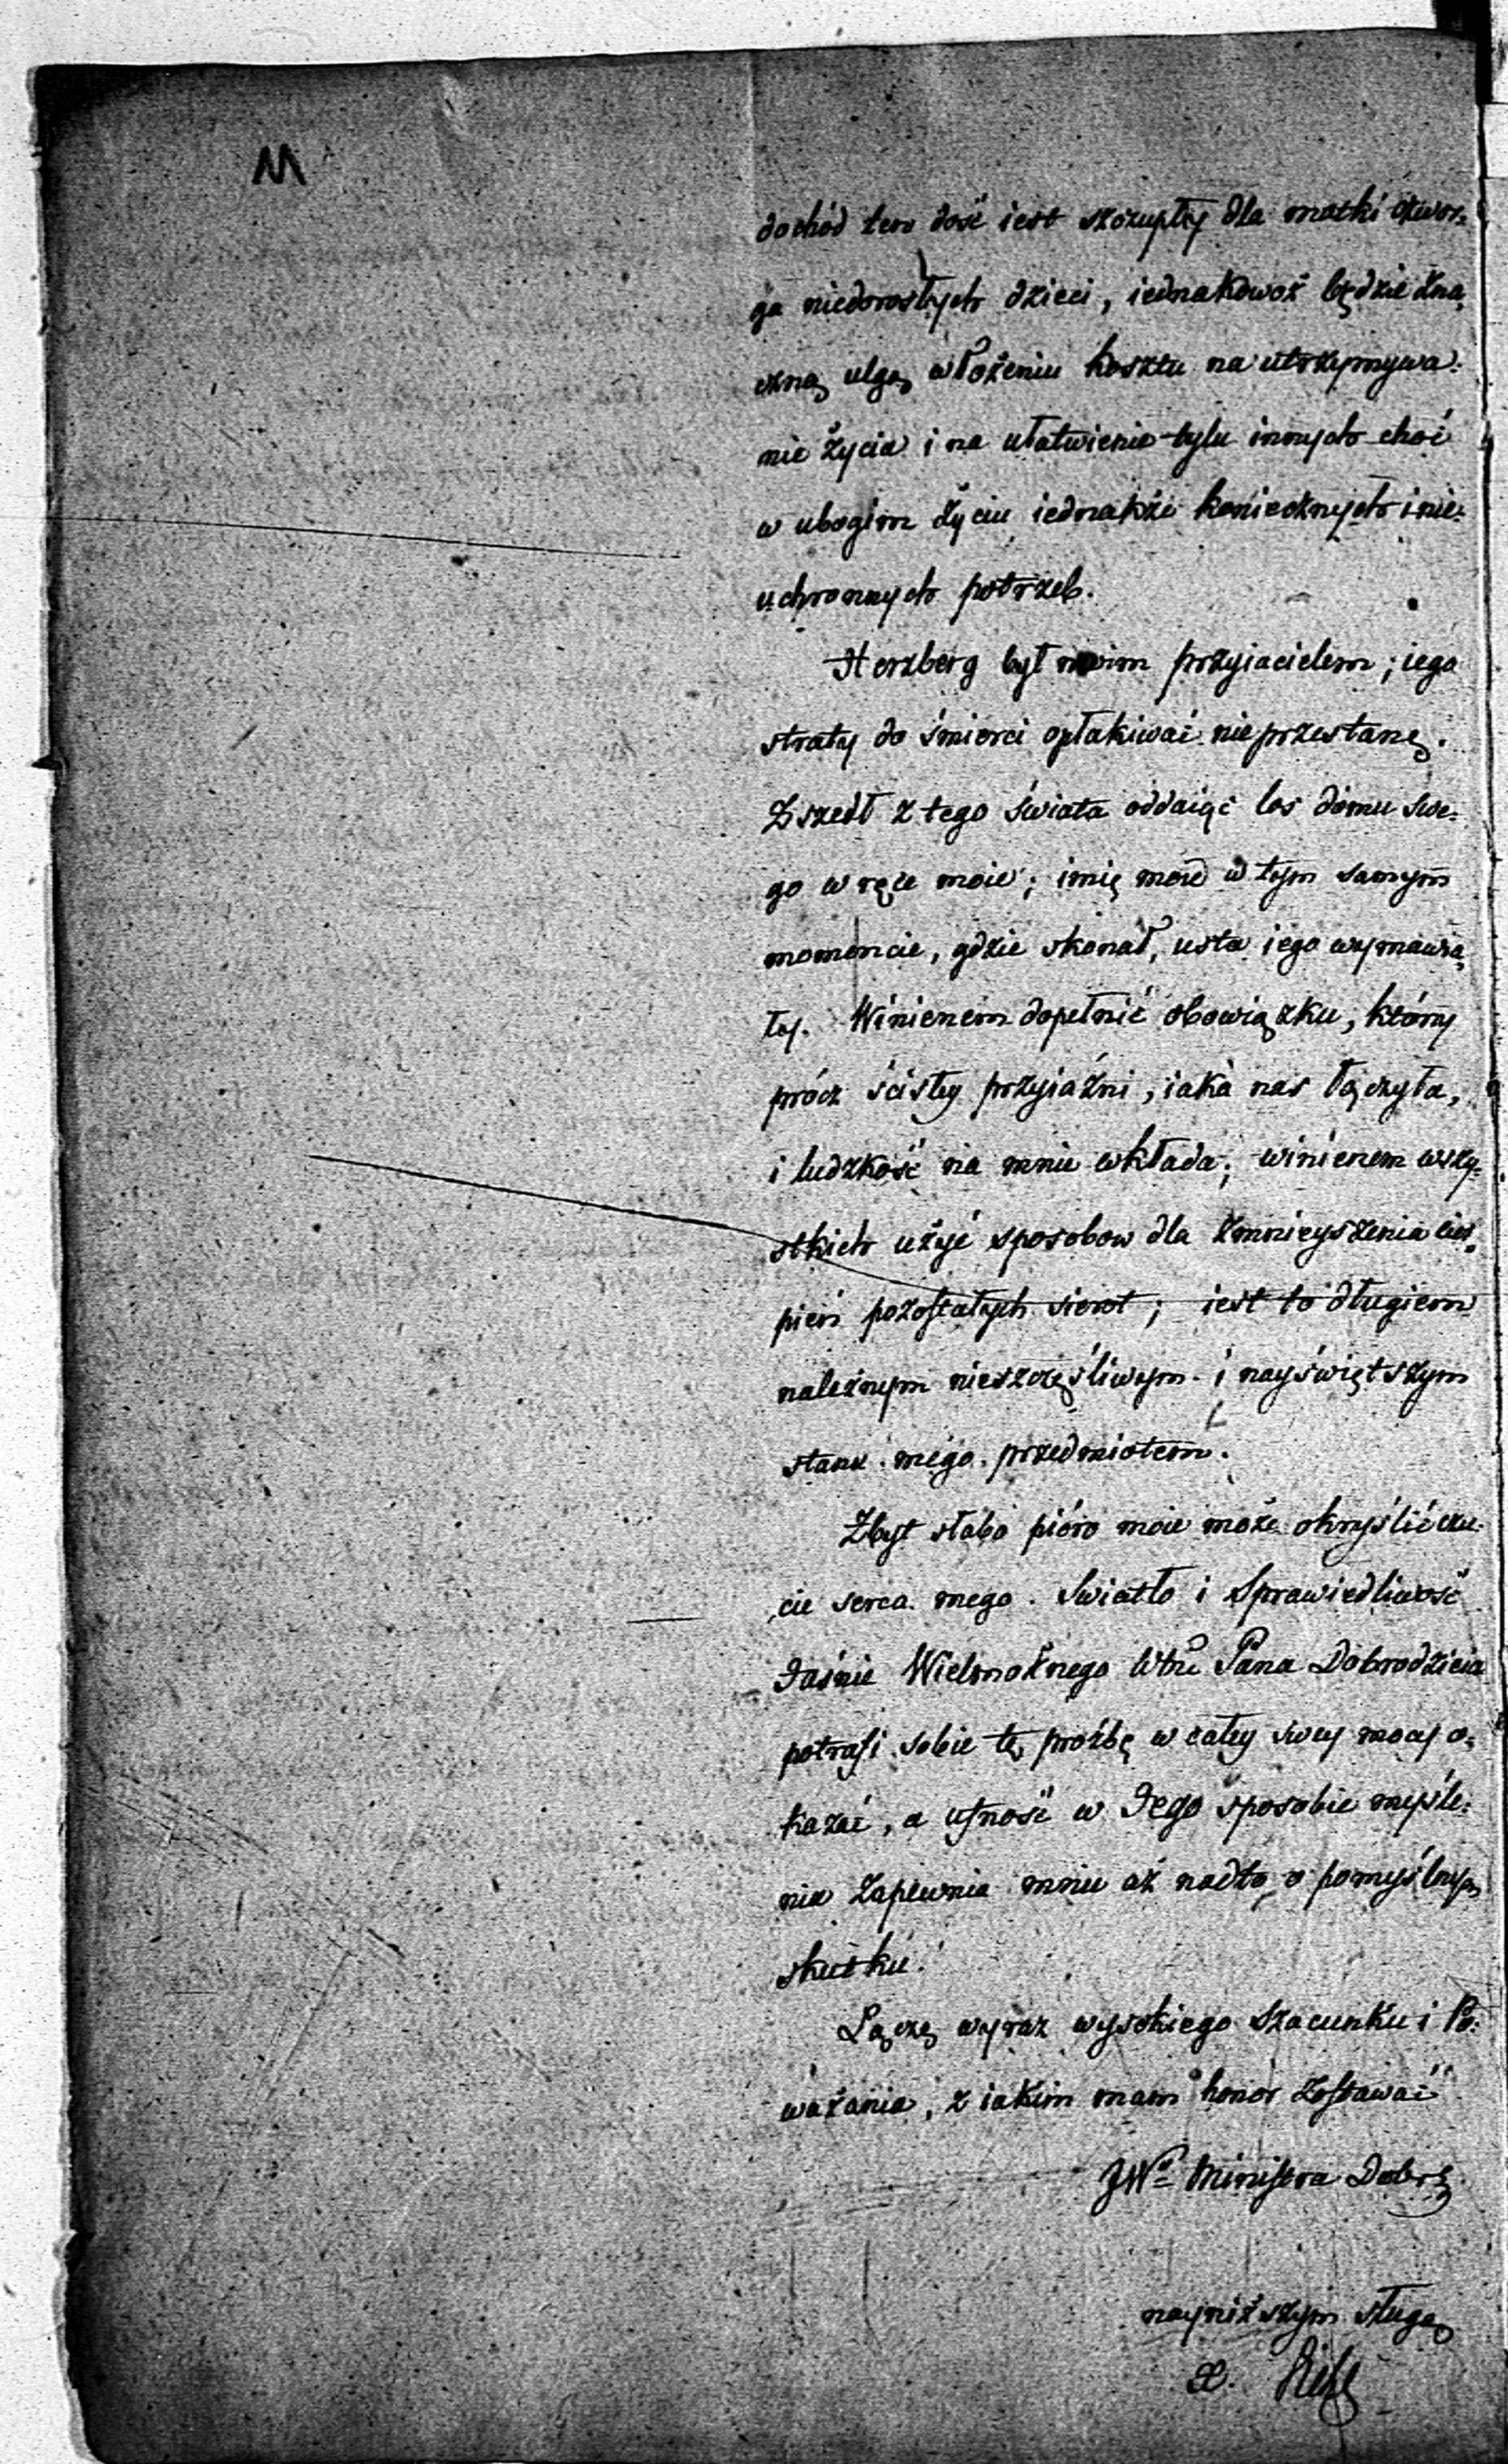 dochód ten dość iest szczupły dla matki czwor-
ga niedorosłych dzieci, iednakowoż będzie zna-
czną ulgą w łożeniu kosztu na utrzymywa-
nie życia i na ułatwienie tylu innych choć
w ubogim życiu iednakże koniecznych i nie-
uchronnych potrzeb.
Herzberg był moim przyiacielem; iego
straty do śmierci opłakiwać nie przestanę.
Zszedł z tego świata oddaiąc los domu swe-
go w ręce moie; imię moie w tym samym
momencie, gdzie skonał, usta iego wymawia-
ły. Winienem dopełnić obowiązku, który
prócz ścisłey przyiaźni, iaka nas łączyła,
i ludzkość na mnie wkłada; winienem wszy-
stkich użyć sposobow dla zmnieyszenia cier-
pień pozostałych sierot; iest to długiem
należnym nieszczęśliwym i nayświętszym
stanu mego przedmiotem.
Zbyt słabo pióro moie może okryślić czu-
cie serca mego. Swiatło i Sprawiedliwość
Jaśnie Wielmożnego Pana Dobrodzieia
potrafi sobie tę proźbę w całey swey mocy o-
kazać, a ufność w Jego sposobie myśle-
nia zapewnia mnie aż nadto o pomyślnym
skutku.
Łączę wyraz wysokiego szacunku i Po-
ważania, z iakim mam honor zostawać
JWo Ministra Dobrz
nayniższym sługą
X.